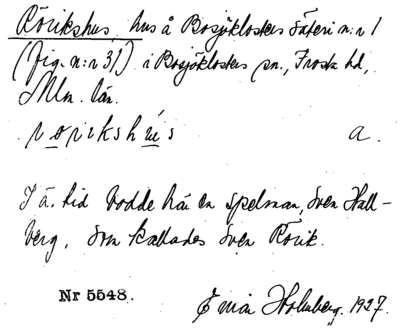 Rörikshus, hus å Bosjöklosters Säteri n:r 1
(fig. n:r 31) i Bosjöklosters sn., Frosta hd,
Mlm. län.
rörikshús a.
I ä. tid bodde här en spelman, Sven Hall-
berg, som kallades Sven Rörik.
Nr 5548. Einar Holmberg. 1927.